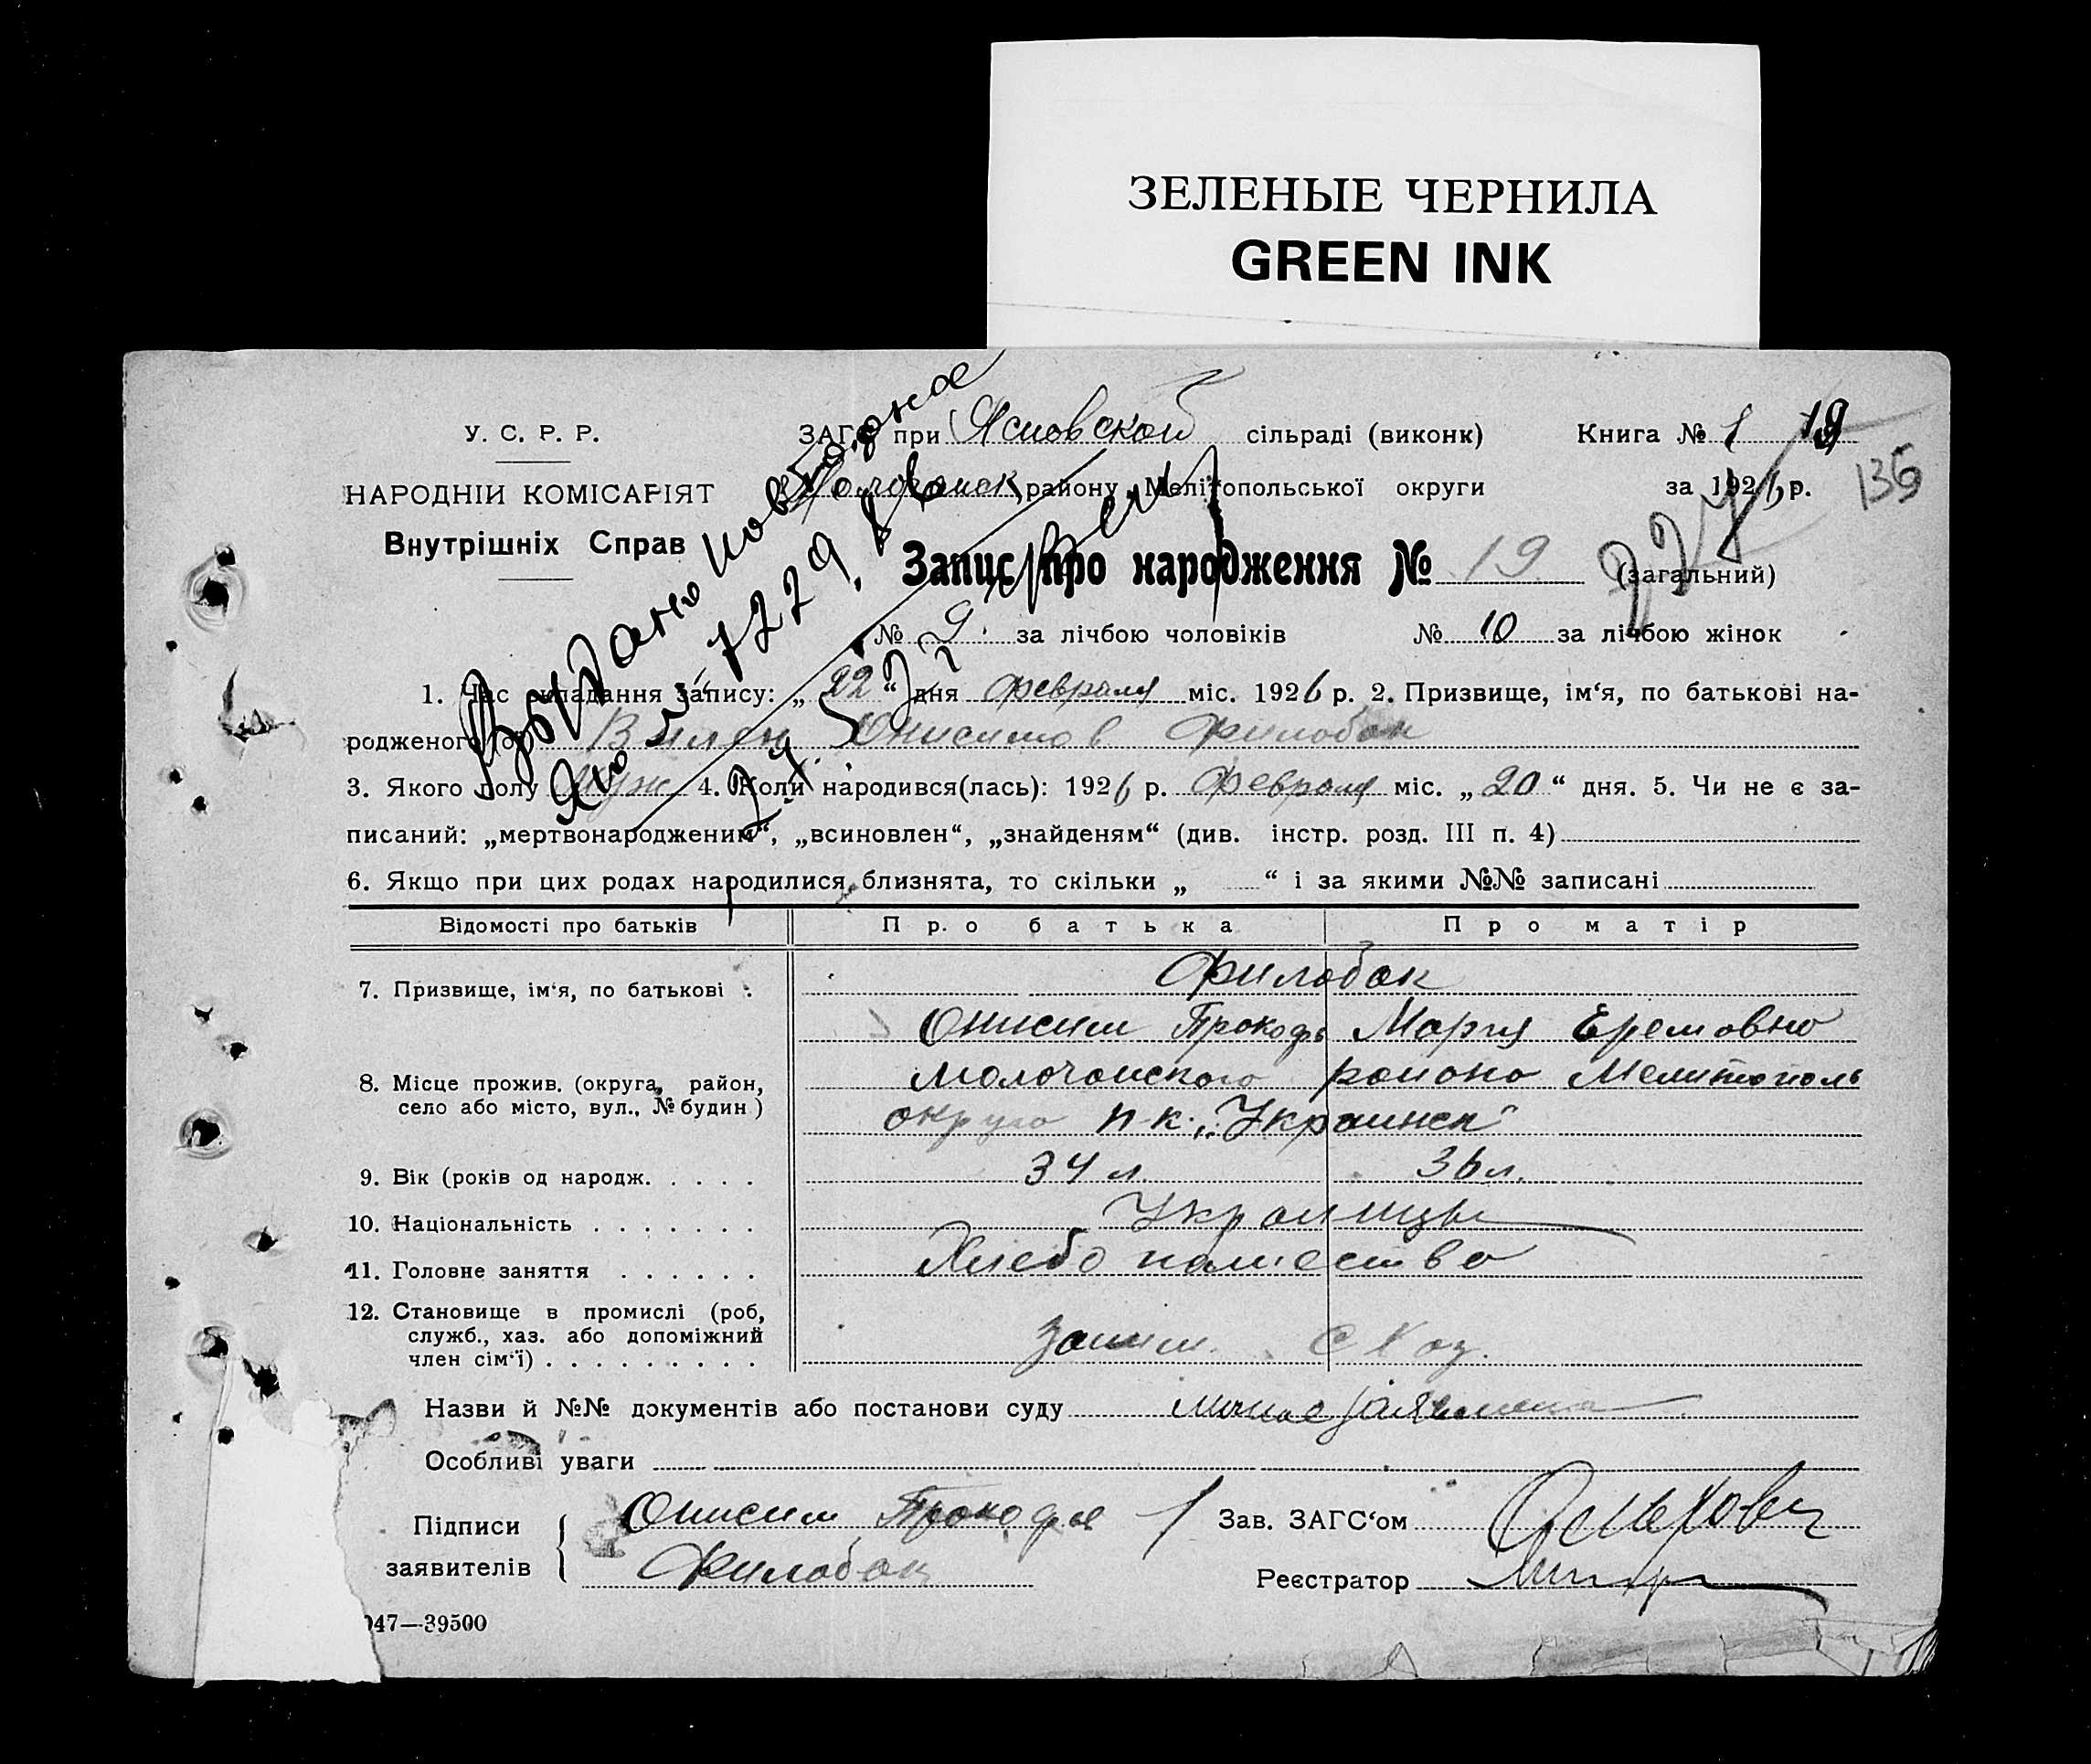 ЗЕЛЕНЫЕ ЧЕРНИЛА
GREEN INK
У. С. Р. Р.
НАРОДНІЙ КОМІСАРІЯТ
Внутрішніх Справ
ЗАГС при Ясиовской сільраді (виконк)
Молочанск району, Мелітопольської округи
Книга № 1 19
за 1926 р.
135
Запис про народження № 19 (загальний)
№ 9 за лічбою чоловіків № 10 за лічбою жінок
Выдано повторное
1. Час складання запису: „22“ дня февраля міс. 1926 р. 2. Призвище, ім‘я, по батькові на-
родженого(ої) Вилен Онисимов Филобок
3. Якого полу муж 4. Коли народився(лась): 1926 р. Февраля міс. „20“ дня. 5. Чи не є за-
писаний: „мертвонародженим“, „всиновлен“, „знайденям“ (див. інстр. розд. III п. 4)
6. Якщо при цих родах народилися близнята, то скільки „ “ і за якими №№ записані
Відомості про батьків Про батька Про матір
7. Призвище, ім‘я, по батькові Филобок
Онисим Прокофь Мария Еремовно
8. Місце прожив. (округа, район, село або місто, вул., № будин) Молочанского района Мелитополь
округа п-к. „Украинск“
9. Вік (років од народж. 34 л. 36 л.
10. Національність Украинцы
11. Головне заняття Хлебопашество
12. Становище в промислі (роб,
служб., хаз. або допоміжний
член сім‘ї)
Назви й №№ документів або постанови суду личное заявлена
Особливі уваги
Підписи заявителів Онисим Прокофе
Филобок
Зав. ЗАГС‘ом
Реєстратор
047—39500